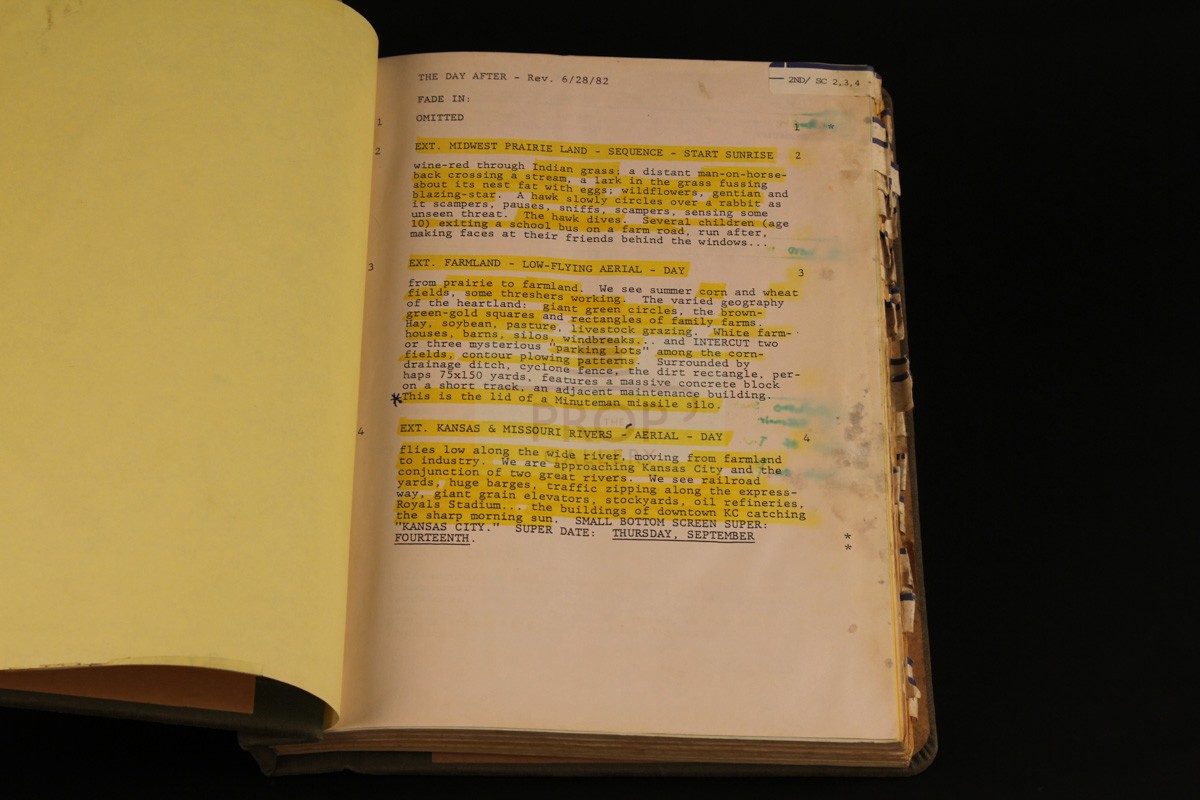 THE DAY AFTER - Rev. 6/28/82
2ND/ SC 2,3,4
FADE IN:
1 OMITTED 1 *
2 EXT. MIDWEST PRAIRIE LAND - SEQUENCE - START SUNRISE 2
wine-red through Indian grass; a distant man-on-horse-
back crossing a stream, a lark in the grass fussing
about its nest fat with eggs; wildflowers, gentian and
blazing-star. A hawk slowly circles over a rabbit as
it scampers, pauses, sniffs, scampers, sensing some
unseen threat. The hawk dives. Several children (age
10) exiting a school bus on a farm road, run after,
making faces at their friends behind the windows...
3 EXT. FARMLAND - LOW-FLYING AERIAL - DAY 3
from prairie to farmland. We see summer corn and wheat
fields, some threshers working. The varied geography
of the heartland: giant green circles, the brown-
green-gold squares and rectangles of family farms.
Hay, soybean, pasture, livestock grazing. White farm-
houses, barns, silos, windbreaks... and INTERCUT two
or three mysterious "parking lots" among the corn-
fields, contour plowing patterns. Surrounded by
drainage ditch, cyclone fence, the dirt rectangle, per-
haps 75x150 yards, features a massive concrete block
on a short track, an adjacent maintenance building.
*This is the lid of a Minuteman missile silo.
THE PROP GALLERY
4 EXT. KANSAS & MISSOURI RIVERS - AERIAL - DAY 4
flies low along the wide river, moving from farmland
to industry. We are approaching Kansas City and the
conjunction of two great rivers. We see railroad
yards, huge barges, traffic zipping along the express-
way, giant grain elevators, stockyards, oil refineries,
Royals Stadium... the buildings of downtown KC catching
the sharp morning sun. SMALL BOTTOM SCREEN SUPER:
"KANSAS CITY." SUPER DATE: THURSDAY, SEPTEMBER *
FOURTEENTH. *